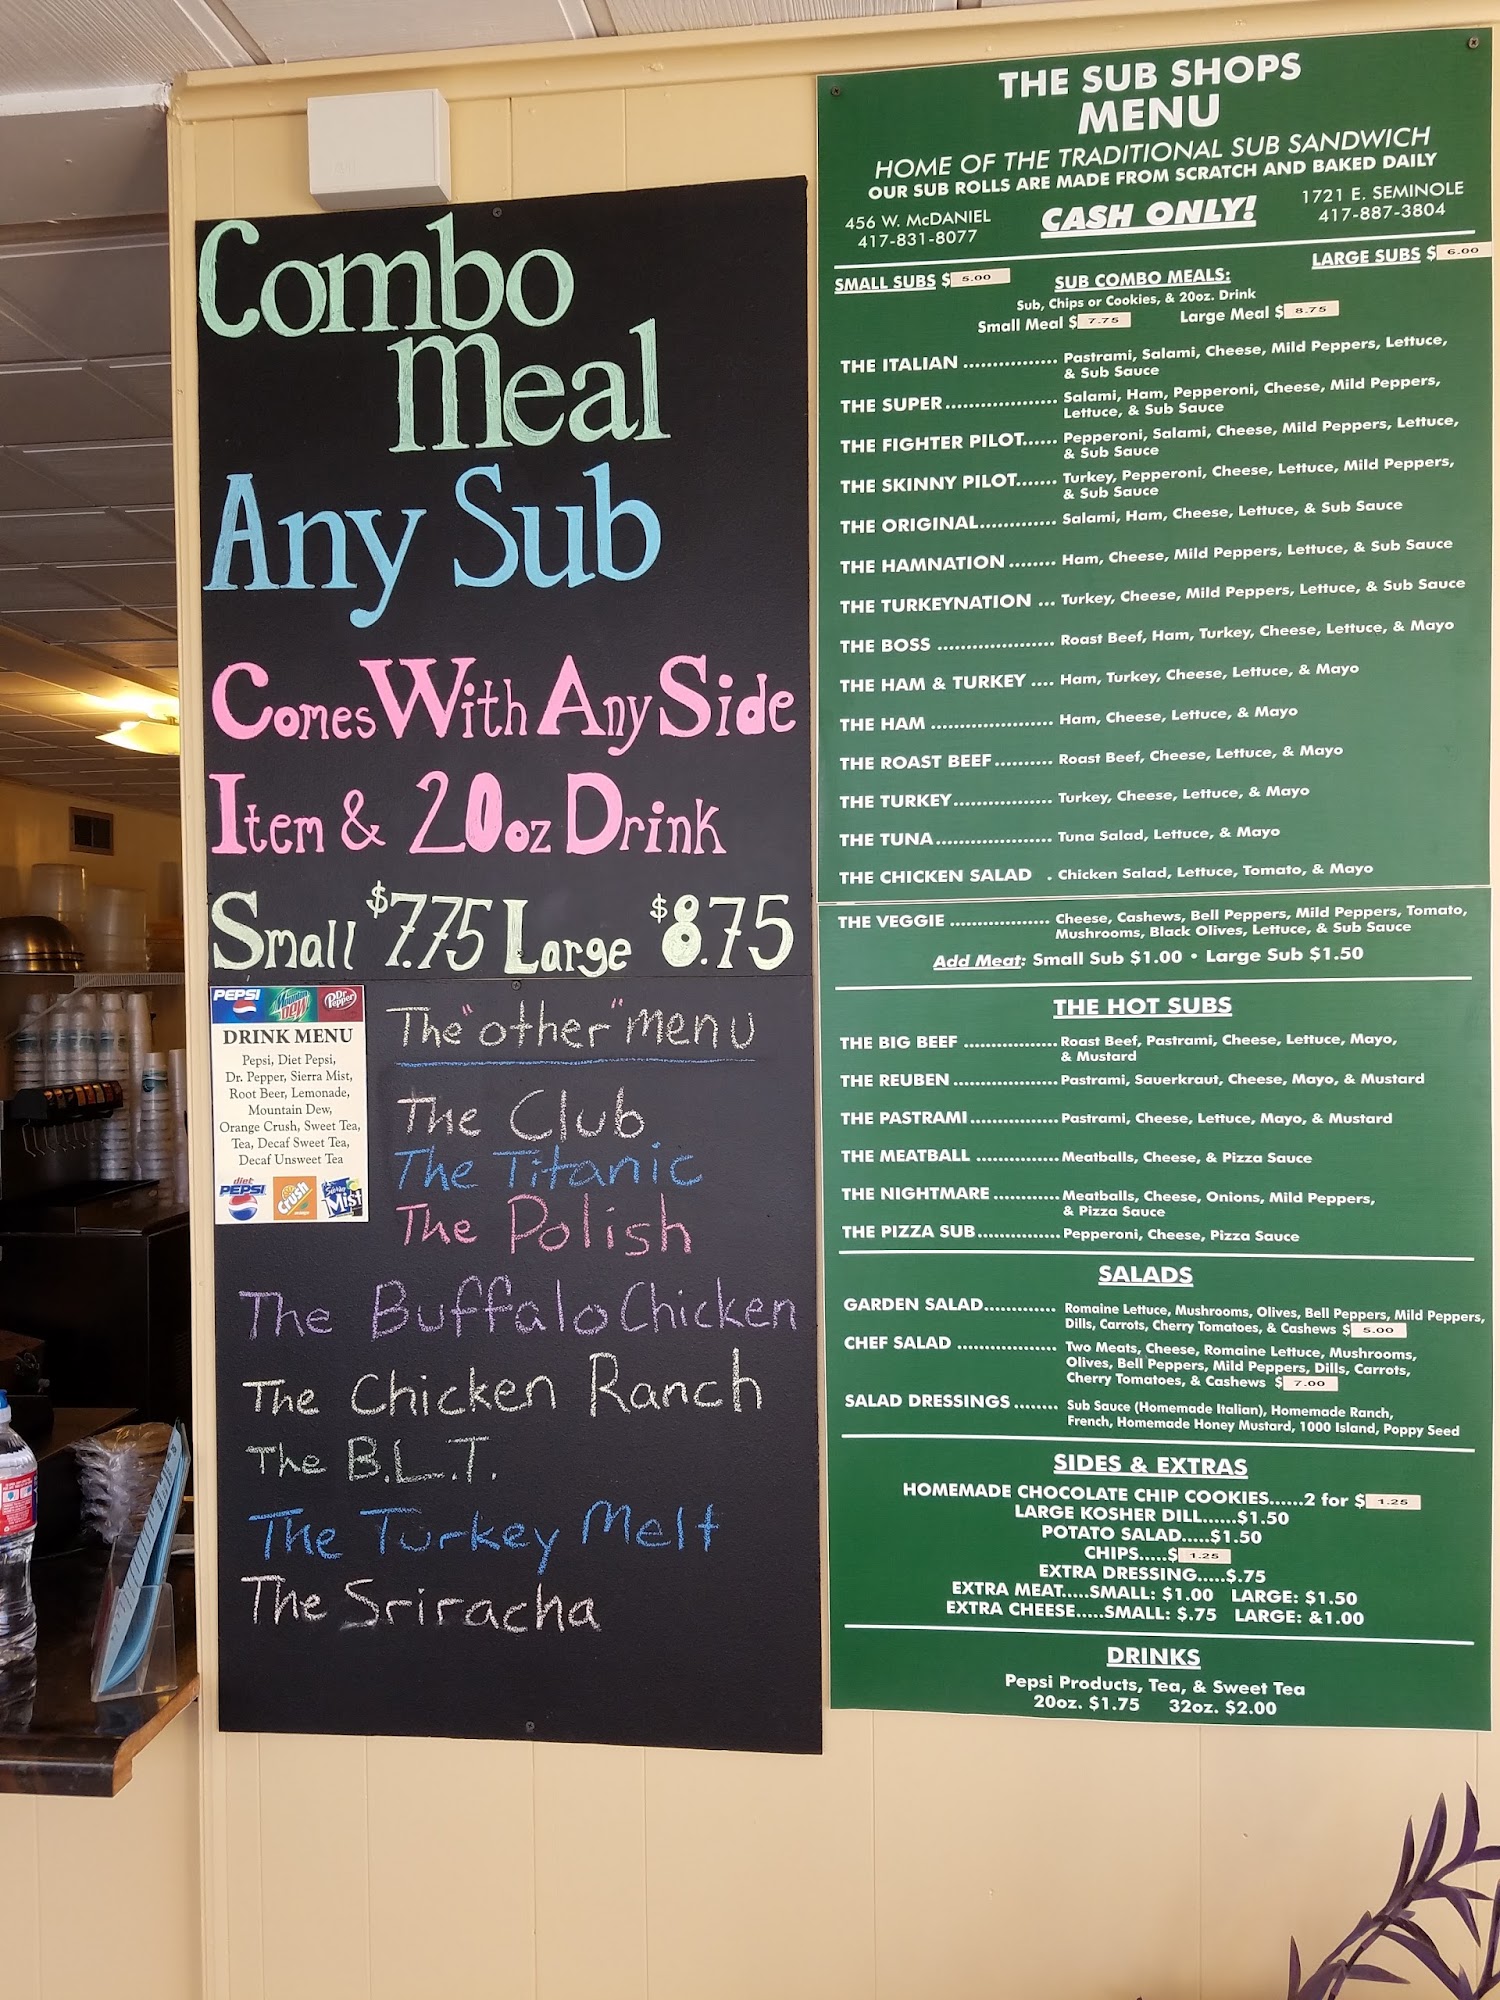 Combo
Meal
Any Sub
Comes With Any Side
Item & 20oz Drink
Small $7.75 Large $8.75
PEPSI Mountain DEW Dr Pepper
DRINK MENU
Pepsi, Diet Pepsi,
Dr. Pepper, Sierra Mist,
Root Beer, Lemonade,
Mountain Dew,
Orange Crush, Sweet Tea,
Tea, Decaf Sweet Tea,
Decaf Unsweet Tea
diet PEPSI Crush Sierra Mist
The "other" menu
The Club
The Titanic
The Polish
The Buffalo Chicken
The Chicken Ranch
The B.L.T.
The Turkey Melt
The Sriracha
THE SUB SHOPS
MENU
HOME OF THE TRADITIONAL SUB SANDWICH
OUR SUB ROLLS ARE MADE FROM SCRATCH AND BAKED DAILY
456 W. McDANIEL
417-831-8077
CASH ONLY!
1721 E. SEMINOLE
417-887-3804
SMALL SUBS $ 5.00
SUB COMBO MEALS:
LARGE SUBS $ 6.00
Sub, Chips or Cookies, & 20oz. Drink
Small Meal $ 7.75 Large Meal $ 8.75
THE ITALIAN ................ Pastrami, Salami, Cheese, Mild Peppers, Lettuce,
& Sub Sauce
THE SUPER................... Salami, Ham, Pepperoni, Cheese, Mild Peppers,
Lettuce, & Sub Sauce
THE FIGHTER PILOT...... Pepperoni, Salami, Cheese, Mild Peppers, Lettuce,
& Sub Sauce
THE SKINNY PILOT....... Turkey, Pepperoni, Cheese, Lettuce, Mild Peppers,
& Sub Sauce
THE ORIGINAL............. Salami, Ham, Cheese, Lettuce, & Sub Sauce
THE HAMNATION ........ Ham, Cheese, Mild Peppers, Lettuce, & Sub Sauce
THE TURKEYNATION ... Turkey, Cheese, Mild Peppers, Lettuce, & Sub Sauce
THE BOSS .................... Roast Beef, Ham, Turkey, Cheese, Lettuce, & Mayo
THE HAM & TURKEY .... Ham, Turkey, Cheese, Lettuce, & Mayo
THE HAM ..................... Ham, Cheese, Lettuce, & Mayo
THE ROAST BEEF.......... Roast Beef, Cheese, Lettuce, & Mayo
THE TURKEY................. Turkey, Cheese, Lettuce, & Mayo
THE TUNA.................... Tuna Salad, Lettuce, & Mayo
THE CHICKEN SALAD . Chicken Salad, Lettuce, Tomato, & Mayo
THE VEGGIE ................. Cheese, Cashews, Bell Peppers, Mild Peppers, Tomato,
Mushrooms, Black Olives, Lettuce, & Sub Sauce
Add Meat: Small Sub $1.00 • Large Sub $1.50
THE HOT SUBS
THE BIG BEEF ................Roast Beef, Pastrami, Cheese, Lettuce, Mayo,
& Mustard
THE REUBEN ..................Pastrami, Sauerkraut, Cheese, Mayo, & Mustard
THE PASTRAMI...............Pastrami, Cheese, Lettuce, Mayo, & Mustard
THE MEATBALL ..............Meatballs, Cheese, & Pizza Sauce
THE NIGHTMARE ...........Meatballs, Cheese, Onions, Mild Peppers,
& Pizza Sauce
THE PIZZA SUB..............Pepperoni, Cheese, Pizza Sauce
SALADS
GARDEN SALAD............ Romaine Lettuce, Mushrooms, Olives, Bell Peppers, Mild Peppers,
Dills, Carrots, Cherry Tomatoes, & Cashews $ 5.00
CHEF SALAD ................. Two Meats, Cheese, Romaine Lettuce, Mushrooms,
Olives, Bell Peppers, Mild Peppers, Dills, Carrots,
Cherry Tomatoes, & Cashews $ 7.00
SALAD DRESSINGS ........ Sub Sauce (Homemade Italian), Homemade Ranch,
French, Homemade Honey Mustard, 1000 Island, Poppy Seed
SIDES & EXTRAS
HOMEMADE CHOCOLATE CHIP COOKIES......2 for $ 1.25
LARGE KOSHER DILL......$1.50
POTATO SALAD.....$1.50
CHIPS.....$ 1.25
EXTRA DRESSING.....$.75
EXTRA MEAT.....SMALL: $1.00 LARGE: $1.50
EXTRA CHEESE.....SMALL: $.75 LARGE: &1.00
DRINKS
Pepsi Products, Tea, & Sweet Tea
20oz. $1.75 32oz. $2.00